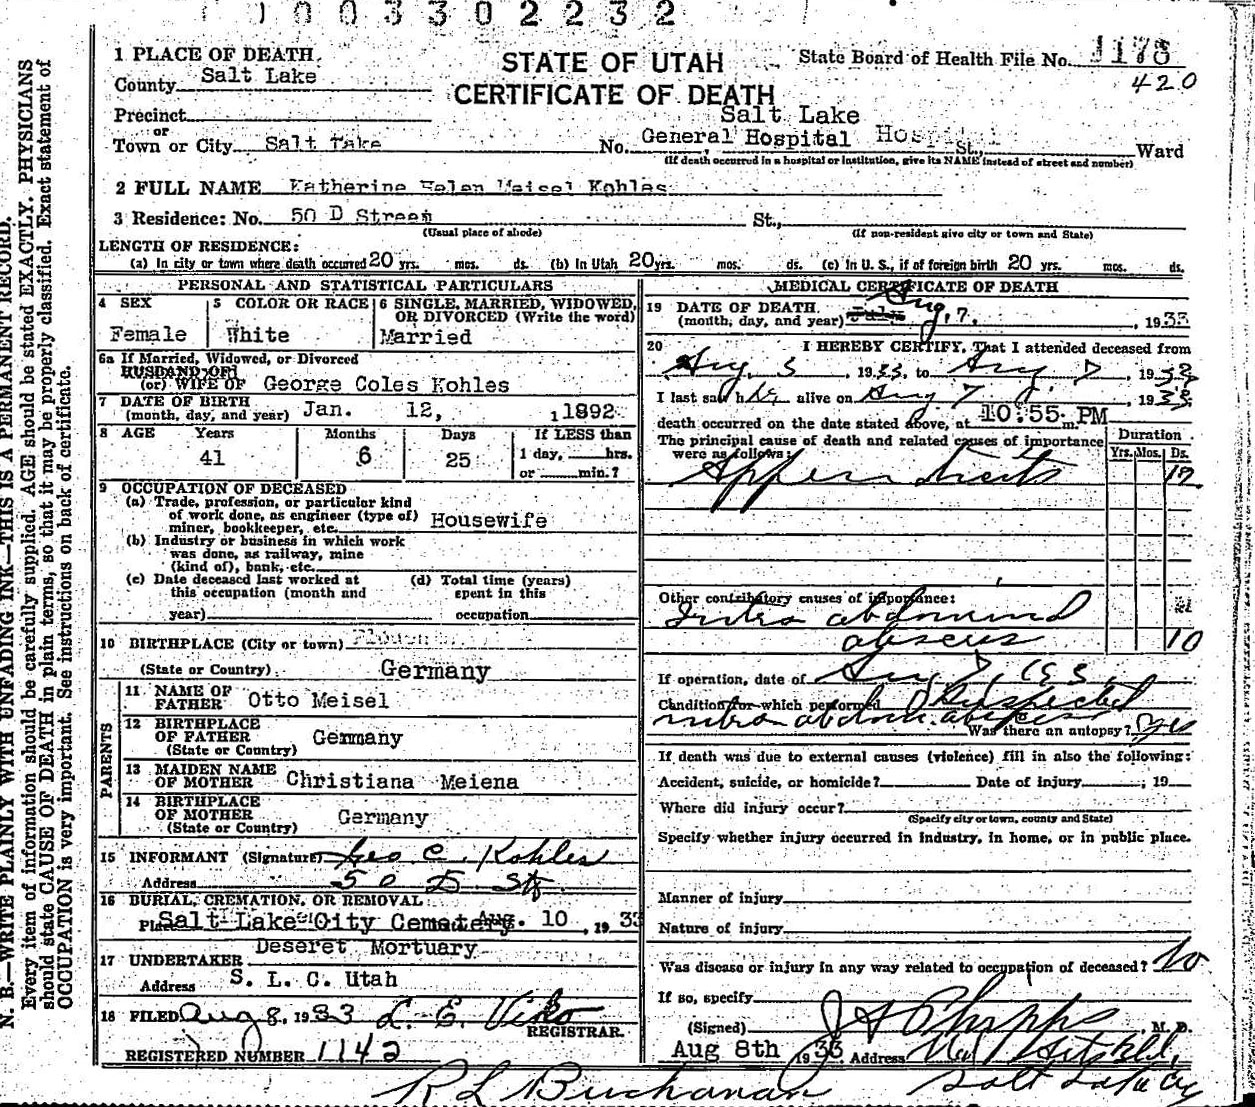 0 0 3 3 0 2 2 3 2
N. B.—WRITE PLAINLY WITH UNFADING INK—THIS IS A PERMANENT RECORD.
Every item of information should be carefully supplied. AGE should be stated EXACTLY. PHYSICIANS
should state CAUSE OF DEATH in plain terms, so that it may be properly classified. Exact statement of
OCCUPATION is very important. See instructions on back of certificate.
STATE OF UTAH
CERTIFICATE OF DEATH
State Board of Health File No. 1175
420
1 PLACE OF DEATH
County Salt Lake
Precinct
or
Town or City Salt Lake No. Salt Lake General Hospital St., Ward
(If death occurred in a hospital or institution, give its NAME instead of street and number)
2 FULL NAME Katherine Helen Meisel Kohles
3 Residence: No. 50 D Street St.,
(Usual place of abode) (If non-resident give city or town and State)
LENGTH OF RESIDENCE:
(a) In city or town where death occurred 20 yrs. mos. ds. (b) In Utah 20 yrs. mos. ds. (c) In U. S., if of foreign birth 20 yrs. mos. ds.
PERSONAL AND STATISTICAL PARTICULARS
4 SEX Female
5 COLOR OR RACE White
6 SINGLE, MARRIED, WIDOWED, OR DIVORCED (Write the word) Married
6a If Married, Widowed, or Divorced
HUSBAND OF
(or) WIFE OF George Coles Kohles
7 DATE OF BIRTH
(month, day, and year) Jan. 12, 1892
8 AGE Years Months Days If LESS than
41 6 25 1 day, hrs.
or min.?
9 OCCUPATION OF DECEASED
(a) Trade, profession, or particular kind
of work done, as engineer (type of)
miner, bookkeeper, etc. Housewife
(b) Industry or business in which work
was done, as railway, mine
(kind of), bank, etc.
(c) Date deceased last worked at
this occupation (month and
year)
(d) Total time (years)
spent in this
occupation
10 BIRTHPLACE (City or town)
(State or Country) Germany
PARENTS
11 NAME OF
FATHER Otto Meisel
12 BIRTHPLACE
OF FATHER Germany
(State or Country)
13 MAIDEN NAME
OF MOTHER Christiana Meiena
14 BIRTHPLACE
OF MOTHER Germany
(State or Country)
15 INFORMANT (Signature) Geo C. Kohles
Address 50 D St.
16 BURIAL, CREMATION, OR REMOVAL
Salt Lake City Cemetery Aug. 10, 1933
17 UNDERTAKER Deseret Mortuary
Address S. L. C. Utah
18 FILED Aug 8, 1933
REGISTRAR.
REGISTERED NUMBER 1142
MEDICAL CERTIFICATE OF DEATH
19 DATE OF DEATH
(month, day, and year) Aug. 7, 1933
20 I HEREBY CERTIFY, That I attended deceased from
Aug. 5, 1933, to Aug 7, 1933
I last saw her alive on Aug 7, 1933
death occurred on the date stated above, at 10:55 PM m.
The principal cause of death and related causes of importance
were as follows:
Duration
Yrs. Mos. Ds.
Appendicitis 17
Other contributory causes of importance:
Intra abdominal
abscess 10
If operation, date of Aug 7, 193
Condition for which performed Suspected
intra abdom. abscess
Was there an autopsy? Yes
If death was due to external causes (violence) fill in also the following:
Accident, suicide, or homicide? Date of injury , 19
Where did injury occur?
(Specify city or town, county and State)
Specify whether injury occurred in industry, in home, or in public place.
Manner of injury
Nature of injury
Was disease or injury in any way related to occupation of deceased? No
If so, specify
(Signed) M. D.
Aug 8th 1933 Address
Salt Lake City
R L Buchanan